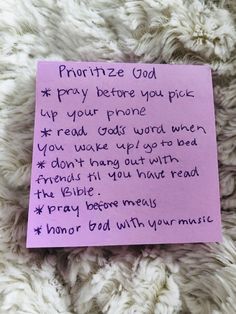 Prioritize God
* pray before you pick
up your phone
* read God's word when
you wake up/go to bed
* don't hang out with
friends til you have read
the Bible.
* pray before meals
* honor God with your music